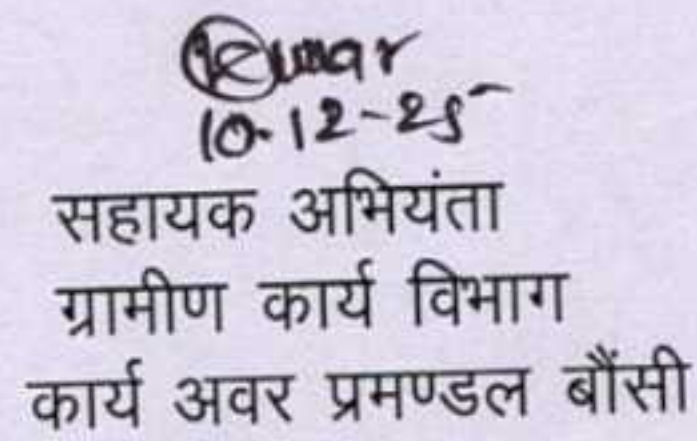 Kumar
10-12-25
सहायक अभियंता
ग्रामीण कार्य विभाग
कार्य अवर प्रमण्डल बौंसी